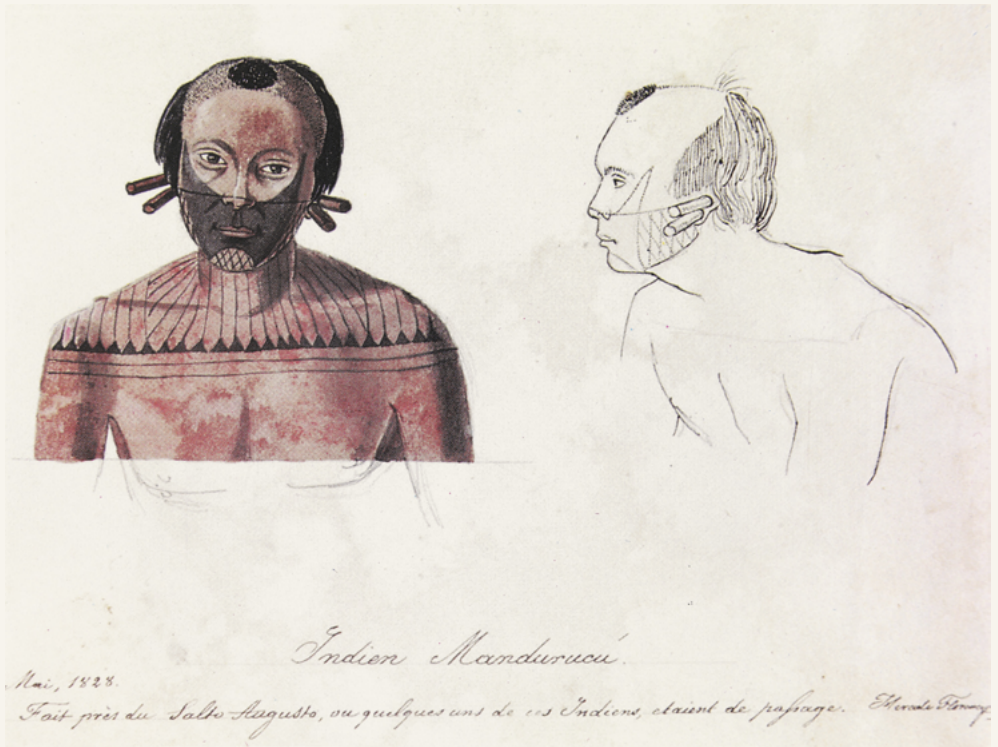 Indien Mandurucú.
Mai, 1828.
Fait près du Salto Augusto, ou quelques uns de ces Indiens, etaient de passage. Hercule Florence